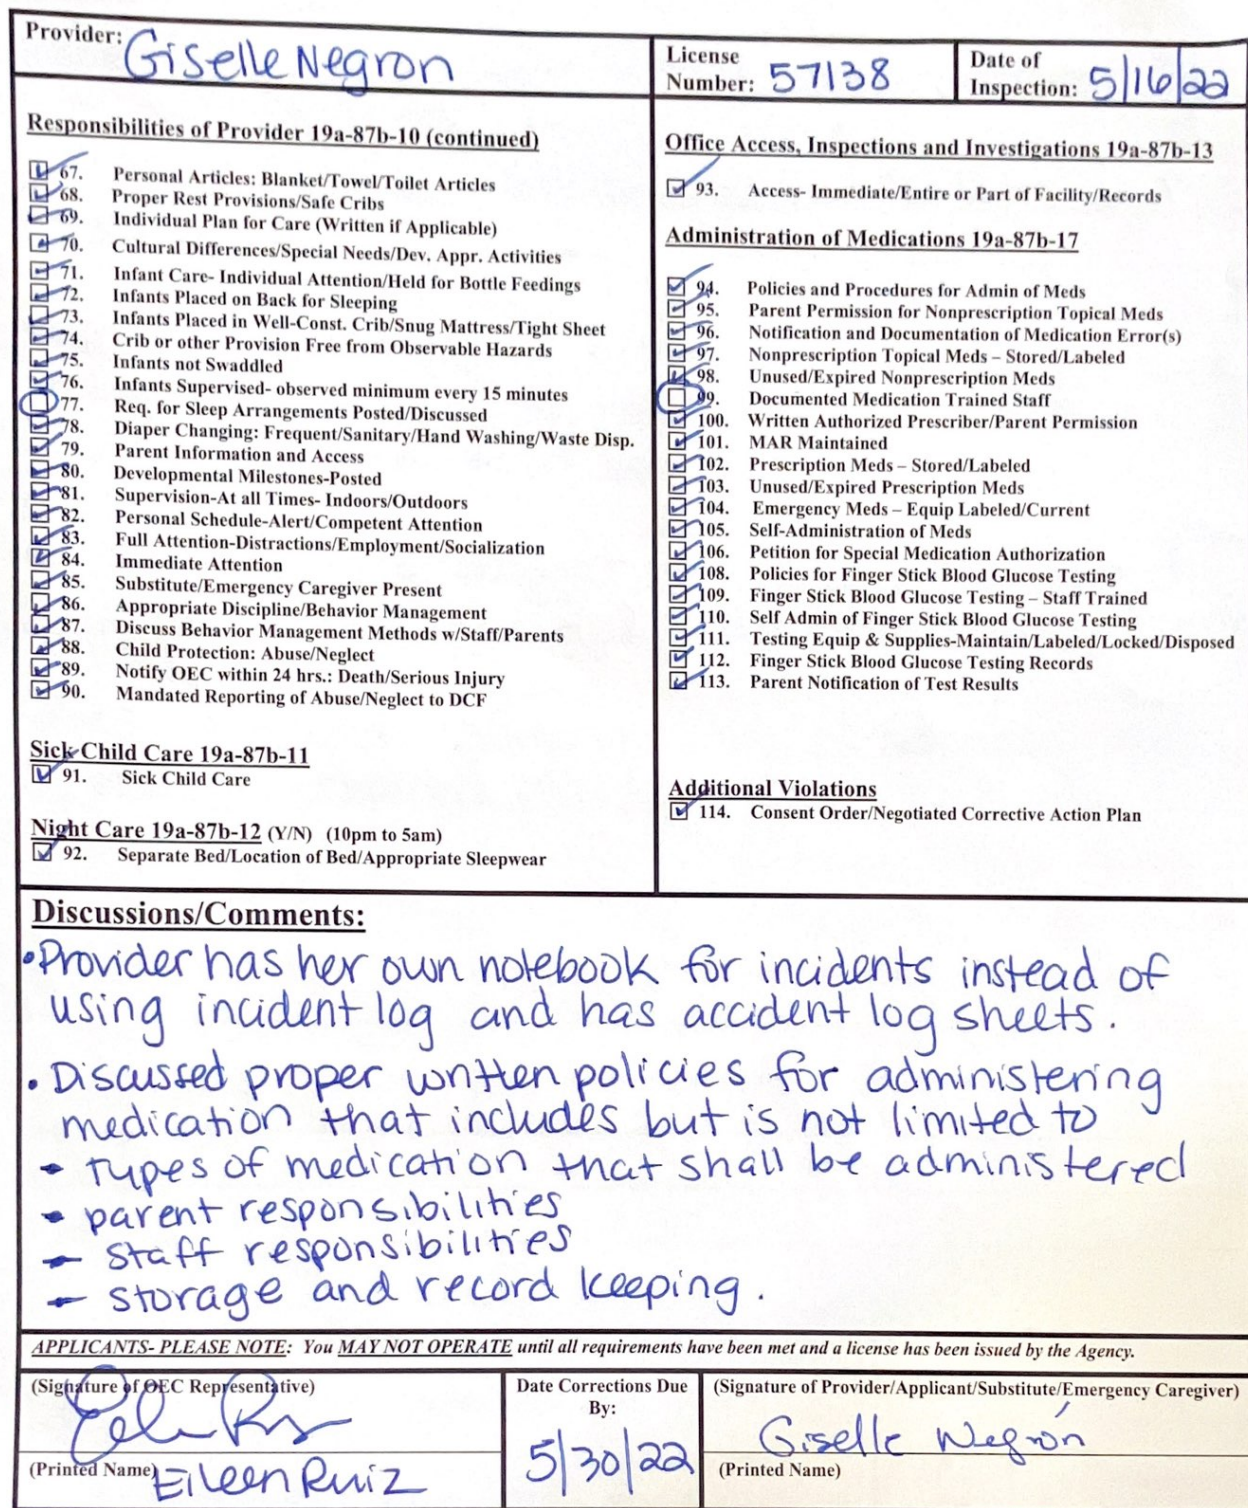 Provider: Giselle Negron
License Number: 57138
Date of Inspection: 5/16/22
Responsibilities of Provider 19a-87b-10 (continued)
67. Personal Articles: Blanket/Towel/Toilet Articles
68. Proper Rest Provisions/Safe Cribs
69. Individual Plan for Care (Written if Applicable)
70. Cultural Differences/Special Needs/Dev. Appr. Activities
71. Infant Care- Individual Attention/Held for Bottle Feedings
72. Infants Placed on Back for Sleeping
73. Infants Placed in Well-Const. Crib/Snug Mattress/Tight Sheet
74. Crib or other Provision Free from Observable Hazards
75. Infants not Swaddled
76. Infants Supervised- observed minimum every 15 minutes
77. Req. for Sleep Arrangements Posted/Discussed
78. Diaper Changing: Frequent/Sanitary/Hand Washing/Waste Disp.
79. Parent Information and Access
80. Developmental Milestones-Posted
81. Supervision-At all Times- Indoors/Outdoors
82. Personal Schedule-Alert/Competent Attention
83. Full Attention-Distractions/Employment/Socialization
84. Immediate Attention
85. Substitute/Emergency Caregiver Present
86. Appropriate Discipline/Behavior Management
87. Discuss Behavior Management Methods w/Staff/Parents
88. Child Protection: Abuse/Neglect
89. Notify OEC within 24 hrs.: Death/Serious Injury
90. Mandated Reporting of Abuse/Neglect to DCF
Sick Child Care 19a-87b-11
91. Sick Child Care
Night Care 19a-87b-12 (Y/N) (10pm to 5am)
92. Separate Bed/Location of Bed/Appropriate Sleepwear
Office Access, Inspections and Investigations 19a-87b-13
93. Access- Immediate/Entire or Part of Facility/Records
Administration of Medications 19a-87b-17
94. Policies and Procedures for Admin of Meds
95. Parent Permission for Nonprescription Topical Meds
96. Notification and Documentation of Medication Error(s)
97. Nonprescription Topical Meds – Stored/Labeled
98. Unused/Expired Nonprescription Meds
99. Documented Medication Trained Staff
100. Written Authorized Prescriber/Parent Permission
101. MAR Maintained
102. Prescription Meds – Stored/Labeled
103. Unused/Expired Prescription Meds
104. Emergency Meds – Equip Labeled/Current
105. Self-Administration of Meds
106. Petition for Special Medication Authorization
108. Policies for Finger Stick Blood Glucose Testing
109. Finger Stick Blood Glucose Testing – Staff Trained
110. Self Admin of Finger Stick Blood Glucose Testing
111. Testing Equip & Supplies-Maintain/Labeled/Locked/Disposed
112. Finger Stick Blood Glucose Testing Records
113. Parent Notification of Test Results
Additional Violations
114. Consent Order/Negotiated Corrective Action Plan
Discussions/Comments:
• Provider has her own notebook for incidents instead of
using incident log and has accident log sheets.
• Discussed proper written policies for administering
medication that includes but is not limited to
- types of medication that shall be administered
- parent responsibilities
- staff responsibilities
- storage and record keeping.
APPLICANTS- PLEASE NOTE: You MAY NOT OPERATE until all requirements have been met and a license has been issued by the Agency.
(Signature of OEC Representative)
(Printed Name) Eileen Ruiz
Date Corrections Due
By:
5/30/22
(Signature of Provider/Applicant/Substitute/Emergency Caregiver)
Giselle Negrón
(Printed Name)